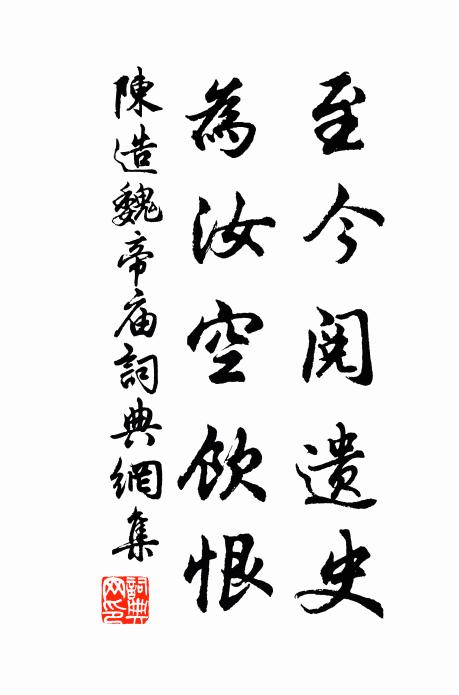 至今阅遗史
為汝空飲恨
陳造魏帝庙詞典網集
詞典网印